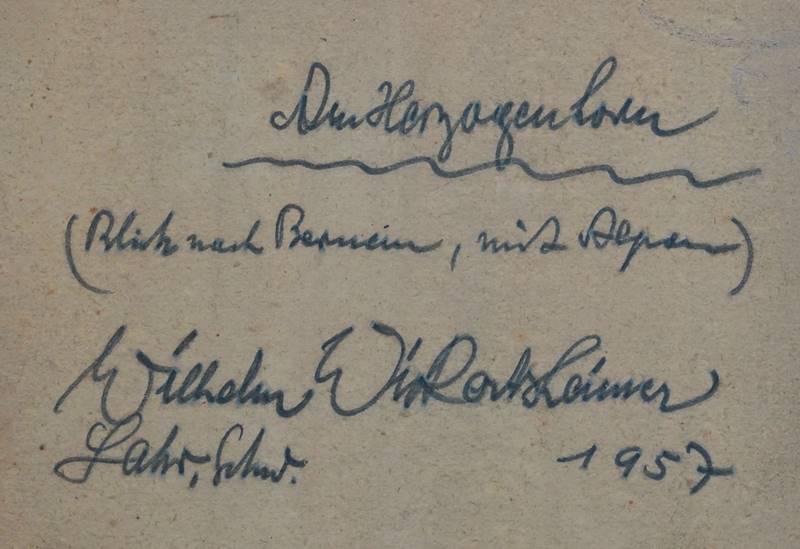 Am Herzogenhorn
(Blick nach Bernau, mit Alpen)
Wilhelm Wickertsheimer
Lahr, Schw. 1957